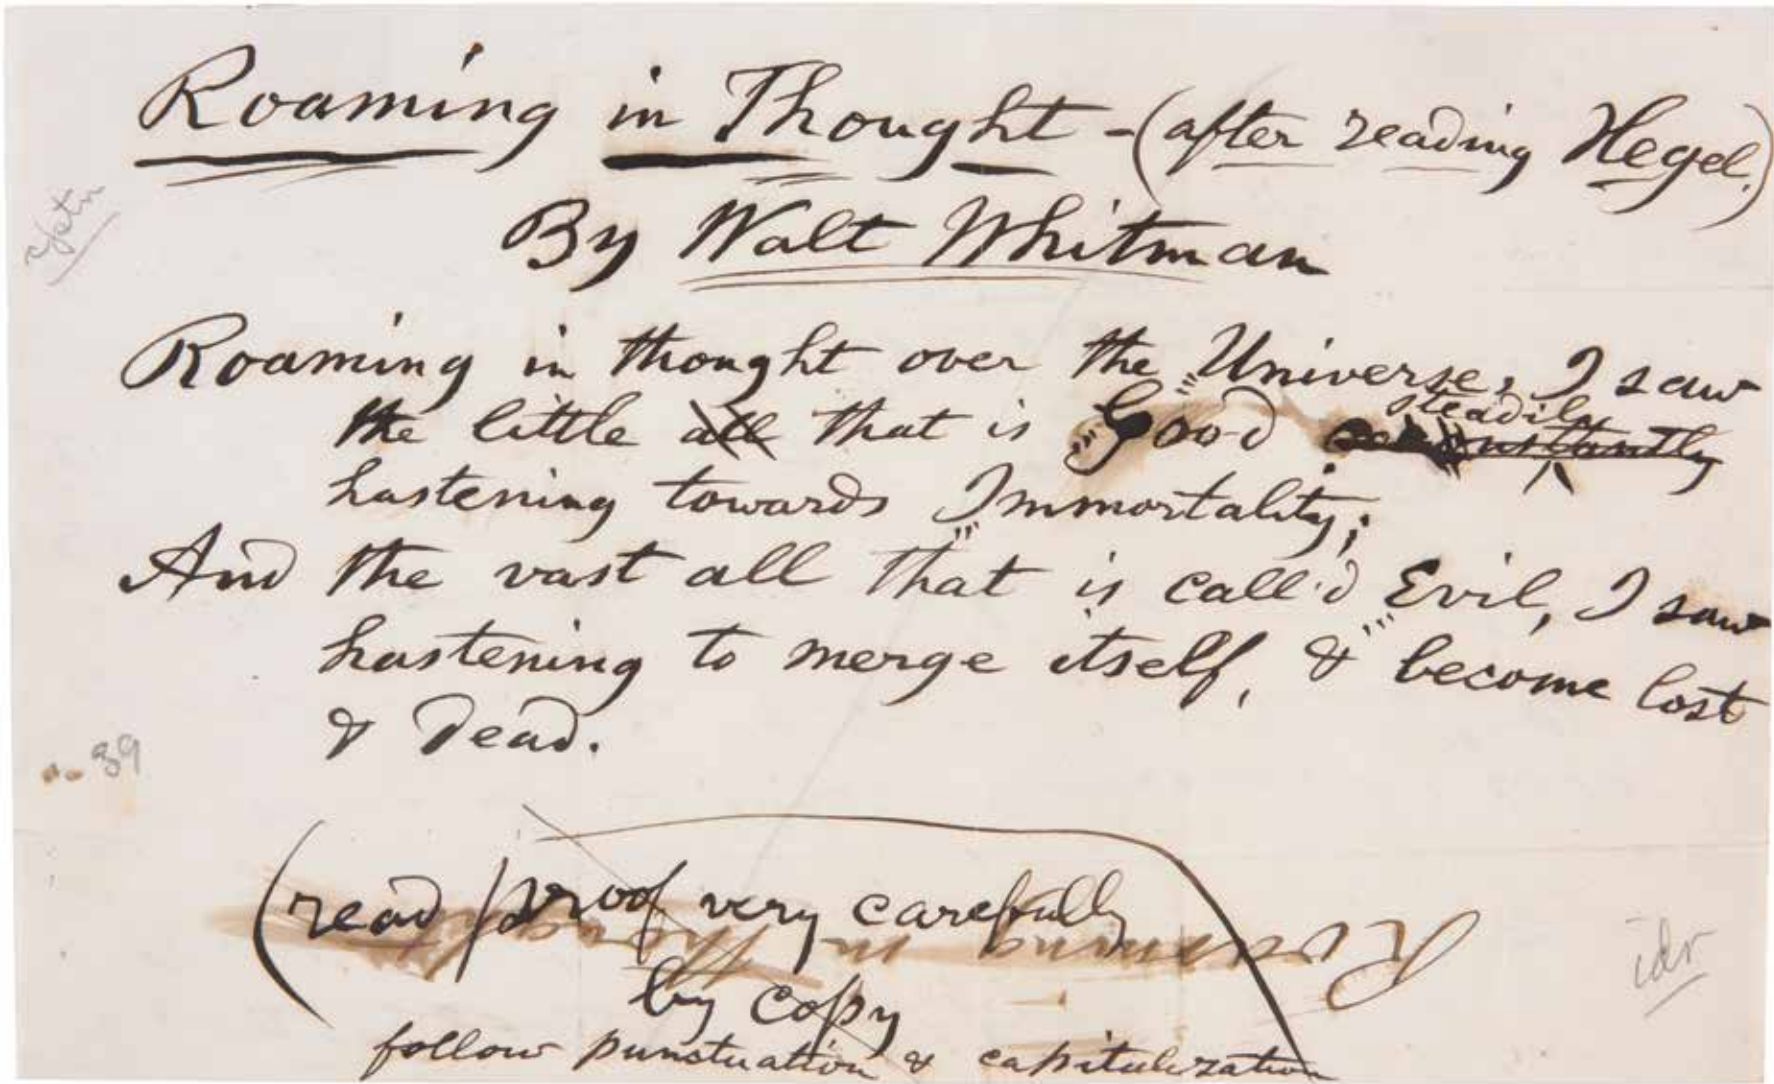 Roaming in Thought - (after reading Hegel.)
By Walt Whitman
Roaming in thought over the Universe, I saw
the little all that is Good steadily constantly
hastening towards Immortality;
And the vast all that is call'd Evil, I saw
hastening to merge itself, & become lost
& dead.
39
(read proof very carefully
Roaming in Thought
by copy
follow punctuation & capitalization